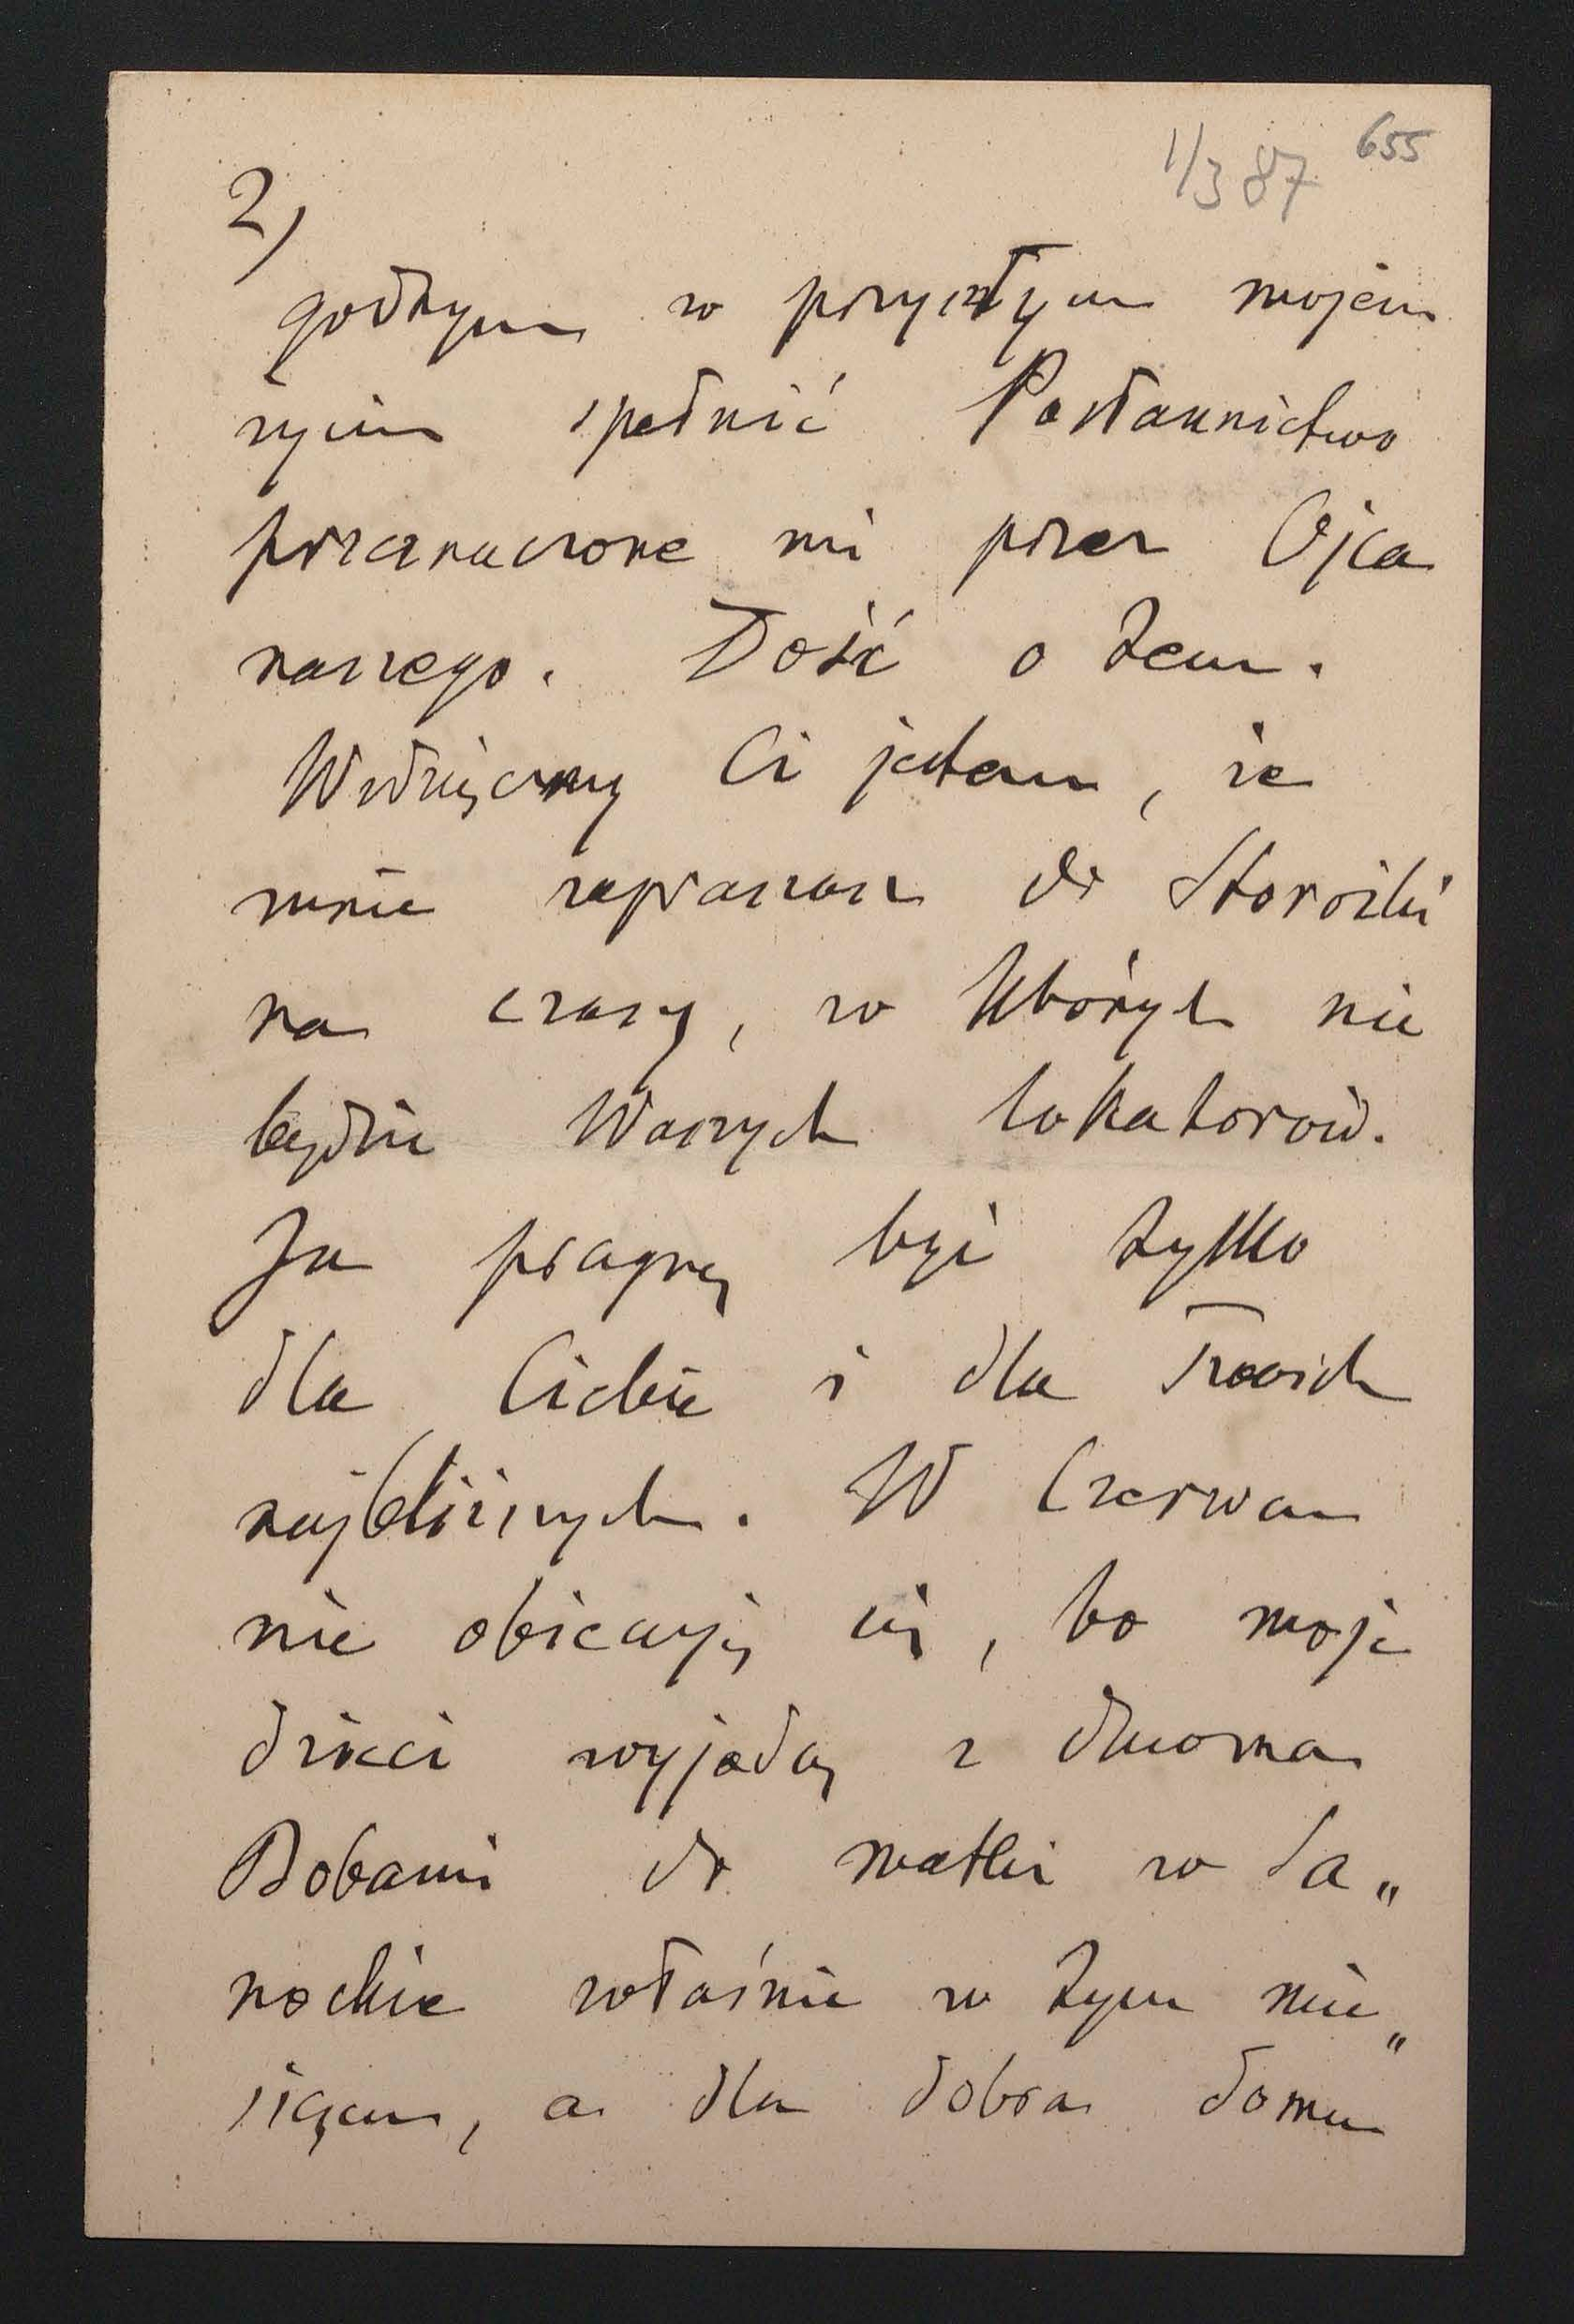 1/3 87 655
2)
godnym w przyszłym mojem
życiu spełnić Posłannictwo
przeznaczone mi przez Ojca
naszego. Dość o tem.
Wdzięczny Ci jestem, że
mnie zapraszasz do Storożki
na czasy, w których nie
będzie Waszych lokatorów.
Ja pragnę być tylko
dla Ciebie i dla Twoich
najbliższych. W Czerwcu
nie obiecuję się, bo moje
dzieci wyjadą z dwoma
Bobami do matki w Sa„
nockie właśnie w tym mie„
siącu, a dla dobra domu